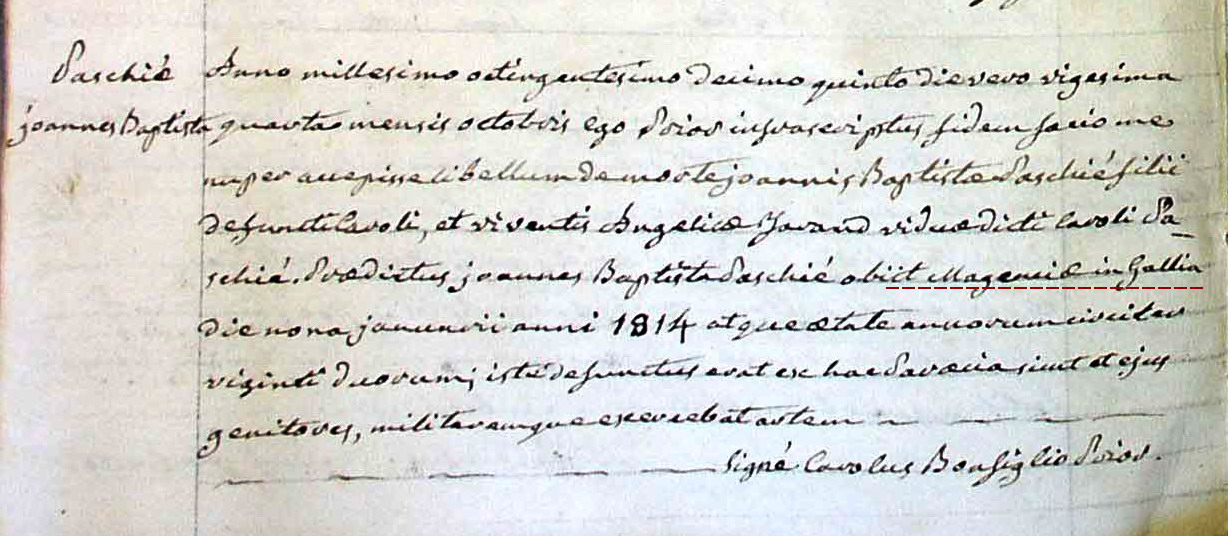 Paschié
Joannes Baptista
Anno millesimo octingentesimo decimo quinto die vero vigesima
quarta mensis octobris ego Prior infrascriptus fidem facio me
nuper accepisse libellum de morte joannis Baptistæ Paschié filii
defuncti Caroli, et viventis Angelicæ Jarand viduæ dicti Caroli Pa-
schié. Prædictus joannes Baptista Paschié obiit Magenciæ in Gallia
die nona januarii anni 1814 atque ætate annorum circiter
viginti duorum; iste defunctus erat ex hac Paræcia sicut et ejus
genitores, militaremque exercebat artem
Signé Carolus Bonsiglio Prior.